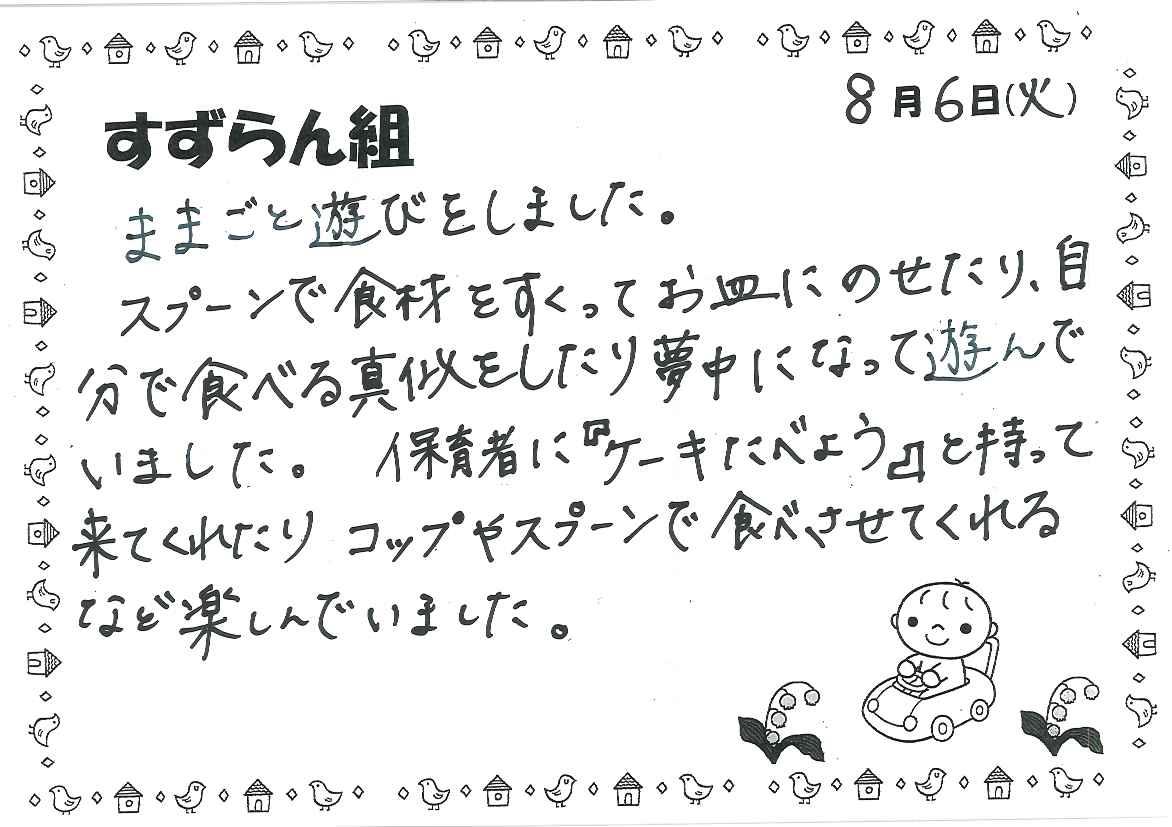 8月6日(火)
すずらん組
ままごと遊びをしました。
スプーンで食材をすくってお皿にのせたり、自
分で食べる真似をしたり夢中になって遊んで
いました。 保育者に『ケーキたべよう』と持って
来てくれたり コップやスプーンで食べさせてくれる
など楽しんでいました。